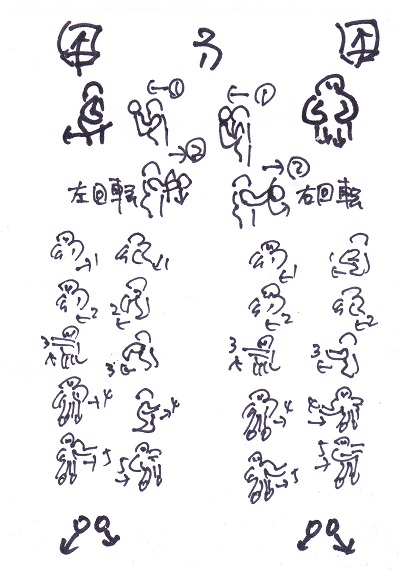 ① ①
② ②
左回転 右回転
1 1 1
2 2 2
3 3 3 3
4 4 4 4
5 5 5 5